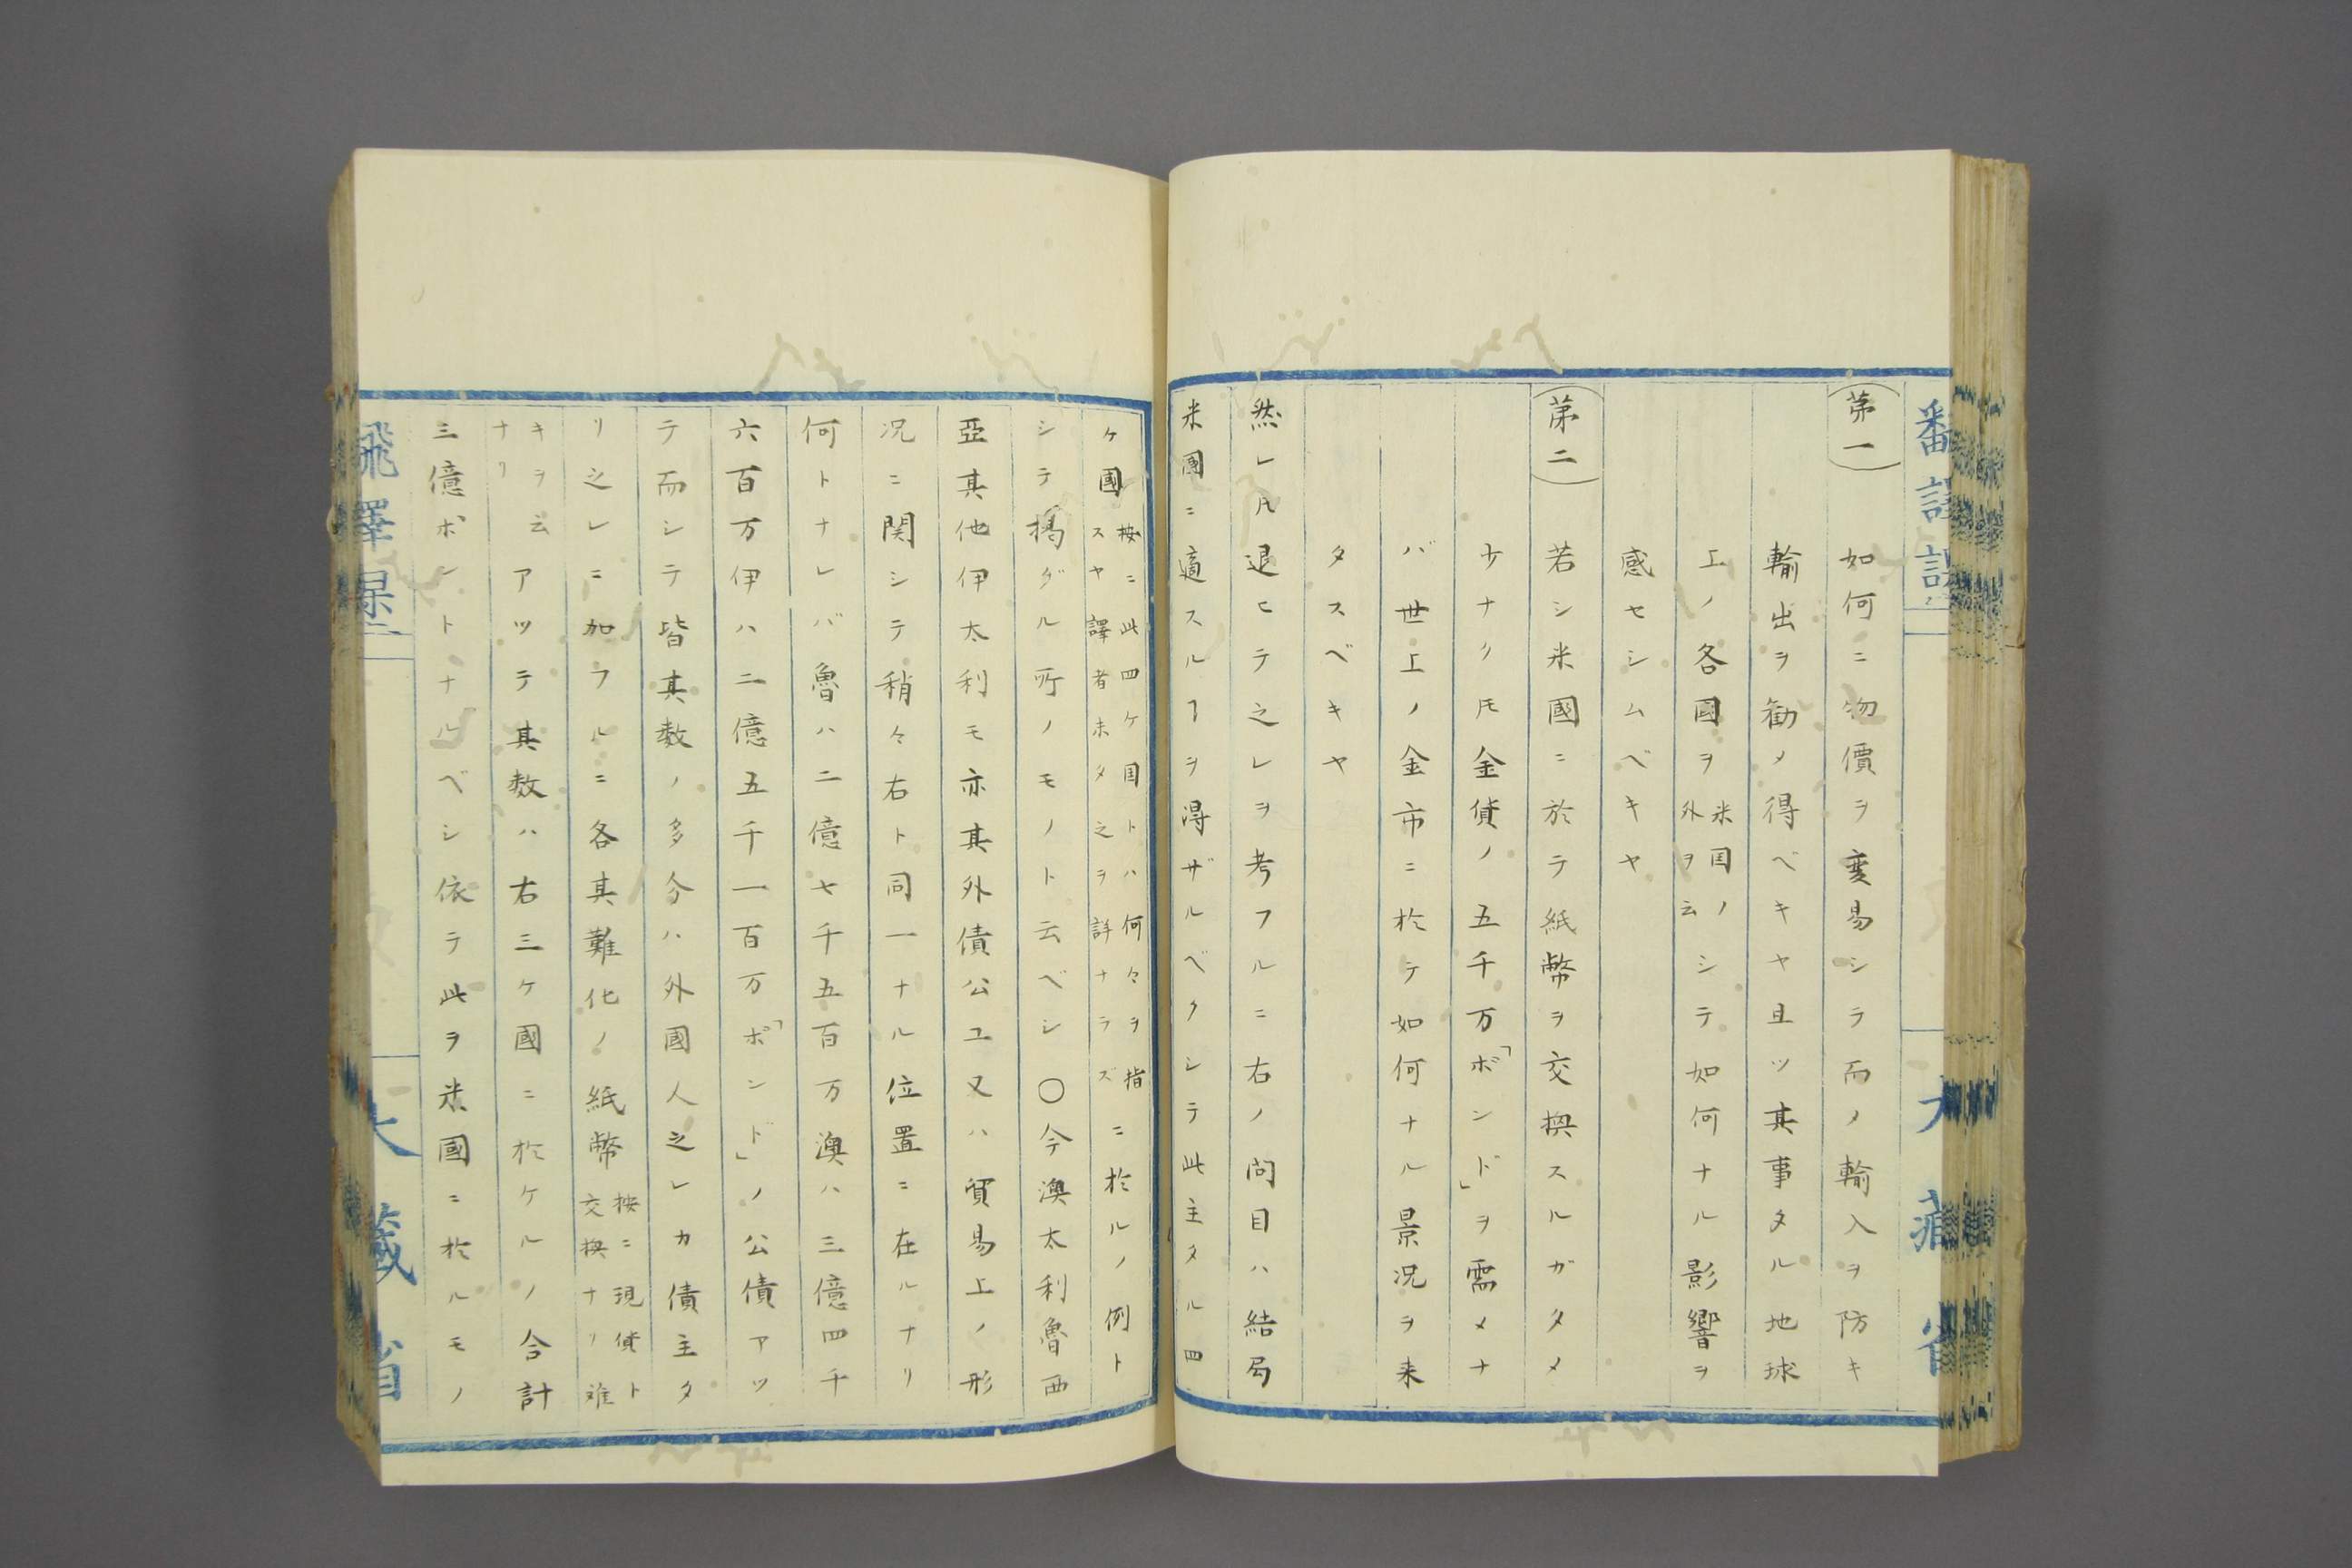 第一
如何ニ物價ヲ変易シテ而ノ輸入ヲ防キ
輸出ヲ勧メ得ベキヤ且ツ其事タル地球
上ノ各國ヲ米国ノ外ヲ云シテ如何ナル影響ヲ
感セシムベキヤ
第二
若シ米國ニ於テ紙幣ヲ交換スルガタメ
少ナクモ金貨ノ五千万「ポンド」ヲ需メナ
バ世上ノ金市ニ於テ如何ナル景況ヲ来
タスベキヤ
然レ𪜈退ヒテ之レヲ考フルニ右ノ問目ハ結局
米國ニ適スルヿヲ得ザルベクシテ此主タル四
ケ國按ニ此四ケ国トハ何々ヲ指スヤ譯者未タ之ヲ詳ナラズニ於ルノ例ト
シテ掲グル所ノモノト云ベシ〇今澳太利魯西
亞其他伊太利モ亦其外債公ユ又ハ貿易上ノ形
況ニ関シテ稍々右ト同一ナル位置ニ在ルナリ
何トナレバ魯ハ二億七千五百万澳ハ三億四千
六百万伊ハ二億五千一百万「ポンド」ノ公債アツ
テ而シテ皆其数ノ多分ハ外國人之レカ債主タ
リ之レニ加フルニ各其難化ノ紙幣按ニ現貨ト交換ナリ难
キヲ云ナリアツテ其数ハ右三ケ國ニ於ケルノ合計
三億ポントナルベシ依テ此ヲ米國ニ於ルモノ
大蔵省
大蔵省